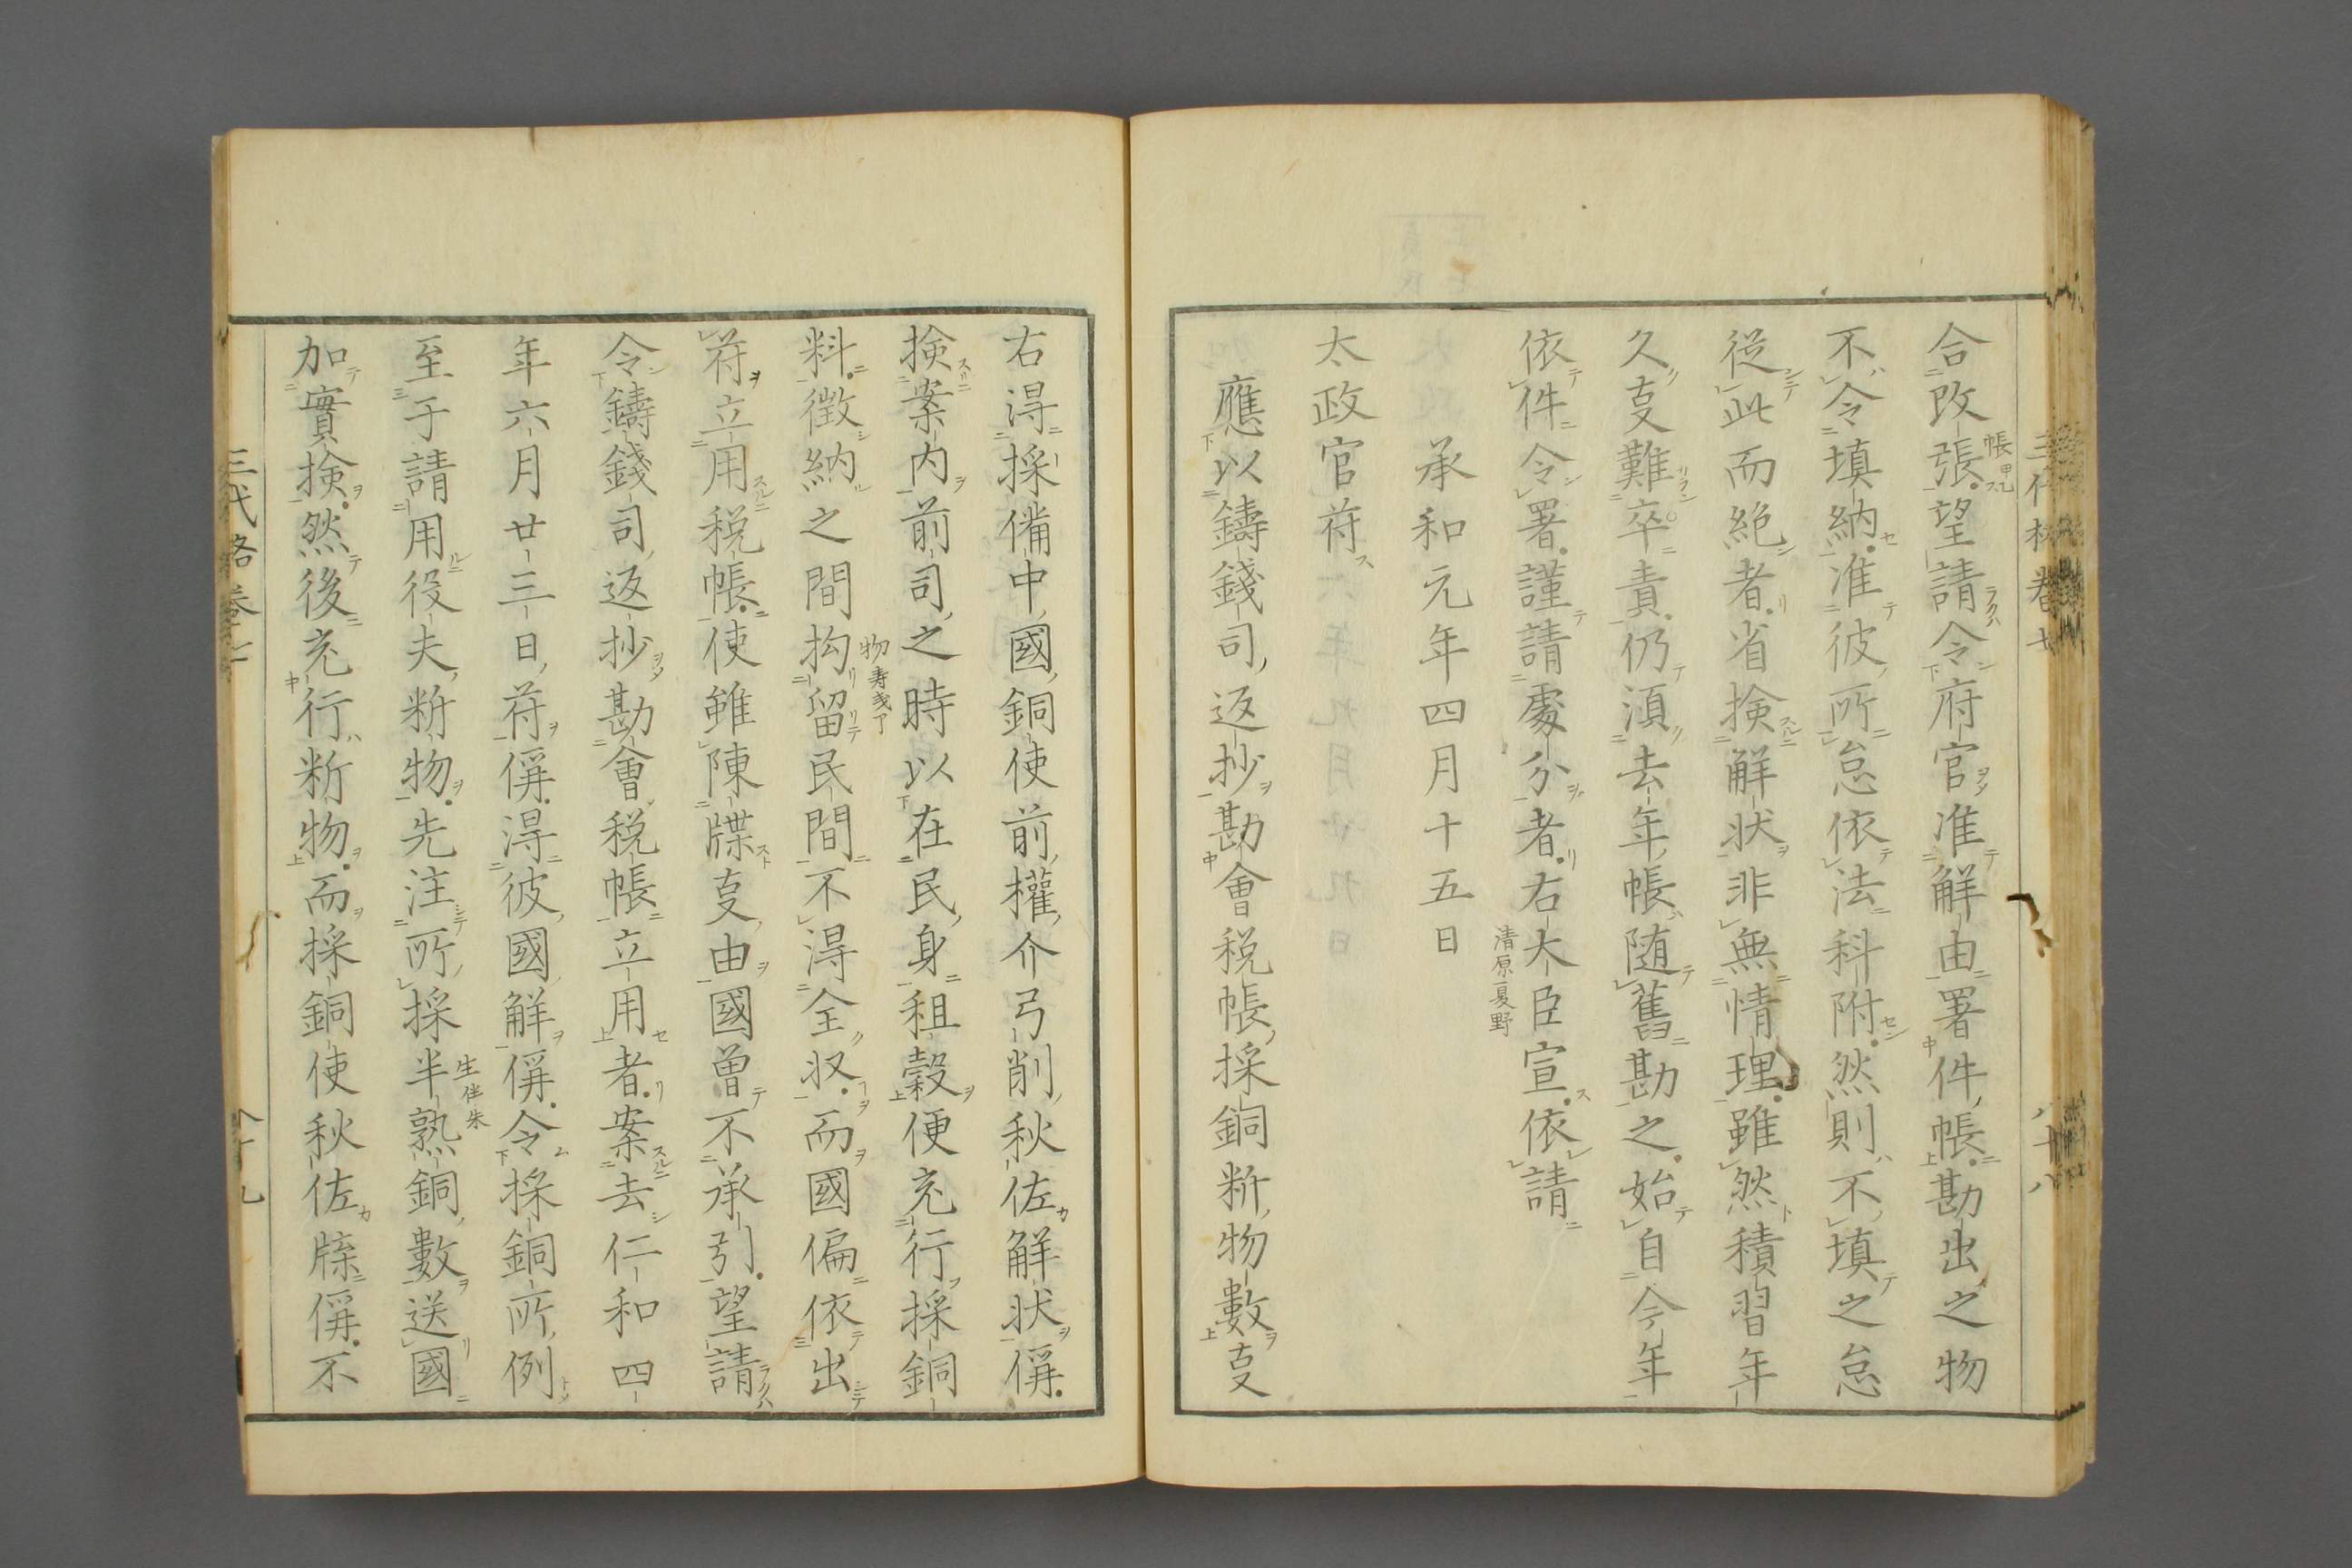 合改張望請令府官准解由署件帳勘出之物
帳
不令填納准彼所怠依法科附然則不填之怠
從此而絶者省検解状非無情理雖然積習年
久㕝難卒責仍湏去年帳随舊勘之始自今年
依件令署謹請處分者右大臣宣依請
清原夏野
承和元年四月十五日
太政官符
應以鑄錢司返抄勘會税帳採銅䉼物數㕝
右淂採備中國銅使前權介弓削秋佐解状偁
検案内前司之時以在民身租穀便充行採銅
料徴納之間拘留民間不淂全収而國偏依出
符立用税帳使雖陳牒㕝由國曽不承引望請
令鑄錢司返抄勘會税帳立用者案去仁和四
年六月廿三日符偁淂彼國解偁令採銅所例
至于請用役夫䉼物先注所採半熟銅數送國
加實検然後充行䉼物而採銅使秋佐牒偁不
三代格巻七
八十八